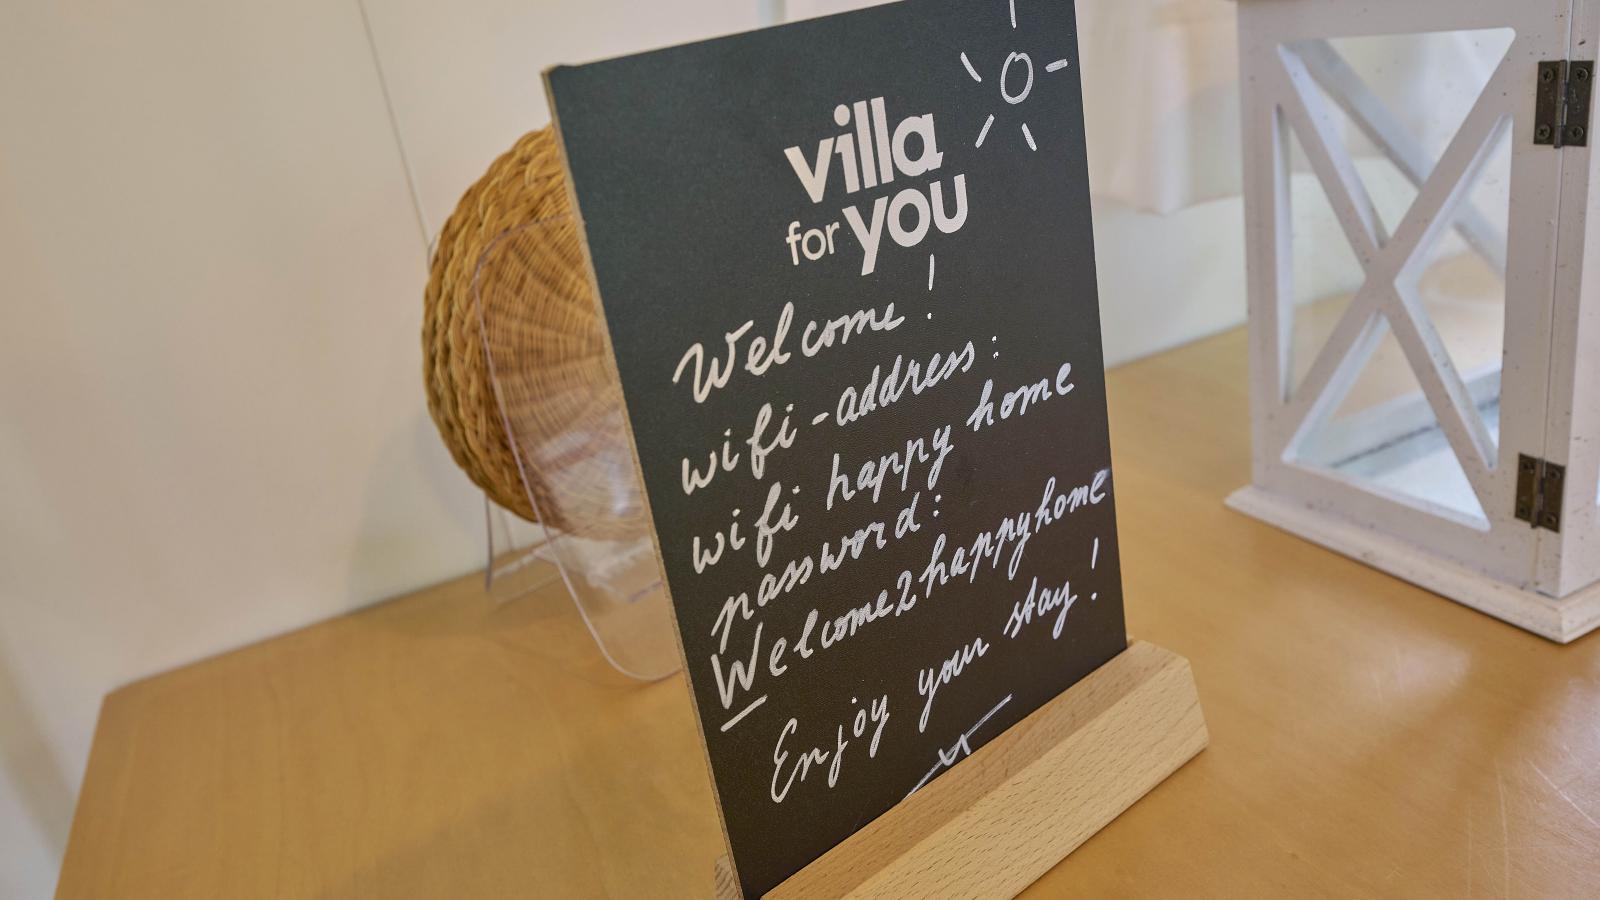 villa
for you
Welcome!
wifi-address:
wifi happy home
password:
Welcome2happyhome
Enjoy your stay!